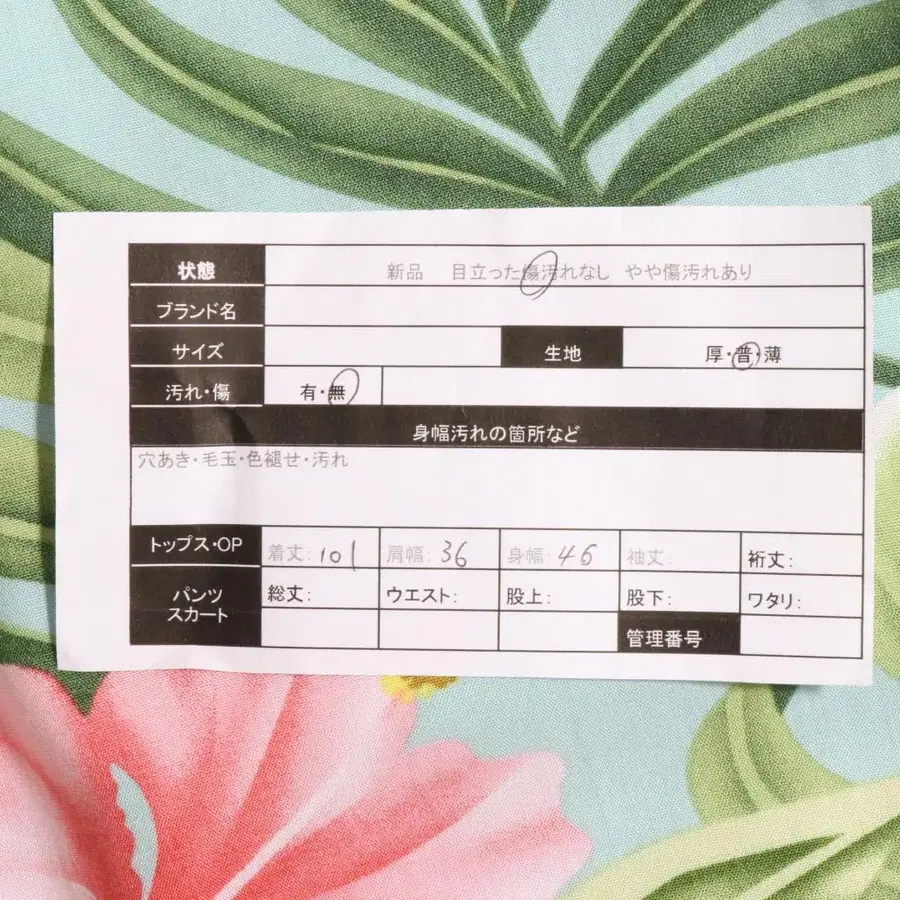 状態 新品 目立った傷汚れなし やや傷汚れあり
ブランド名
サイズ 生地 厚・普・薄
汚れ・傷 有・無
身幅汚れの箇所など
穴あき・毛玉・色褪せ・汚れ
トップス・OP 着丈: 101 肩幅: 36 身幅: 46 袖丈: 裄丈:
パンツ スカート 総丈: ウエスト: 股上: 股下: ワタリ:
管理番号